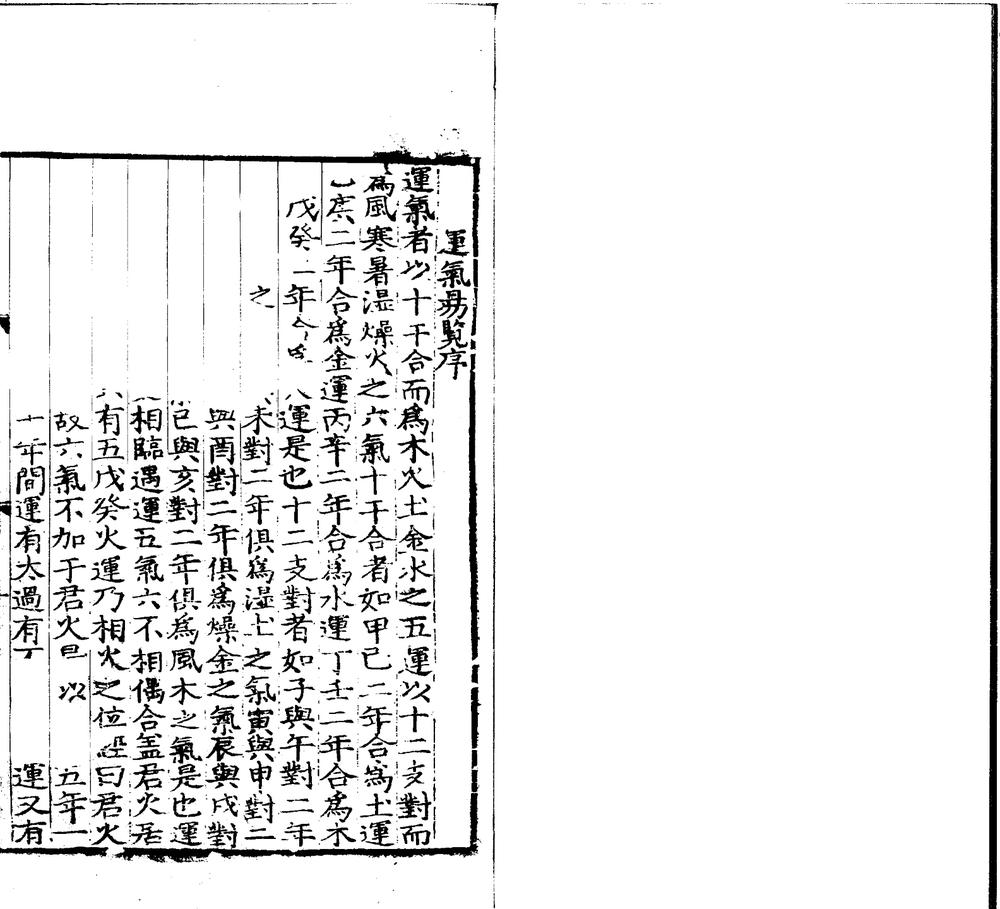 運氣易覽序
運氣者以十干合而爲木火土金水之五運以十二支對而
爲風寒暑濕燥火之六氣十干合者如甲己二年合爲土運
庚二年合爲金運丙辛二年合爲水運丁壬二年合爲木
戊癸二年合 運是也十二支對者如子與午對二年
之 未對二年俱爲濕土之氣寅與申對二
與酉對二年俱爲燥金之氣辰與戌對
巳與亥對二年俱爲風木之氣是也運
相臨遇運五氣六不相偶合盖君火居
有五戊癸火運乃相火之位經曰君火
故六氣不加于君火 以 五年一
十年間運有太過有 運又有